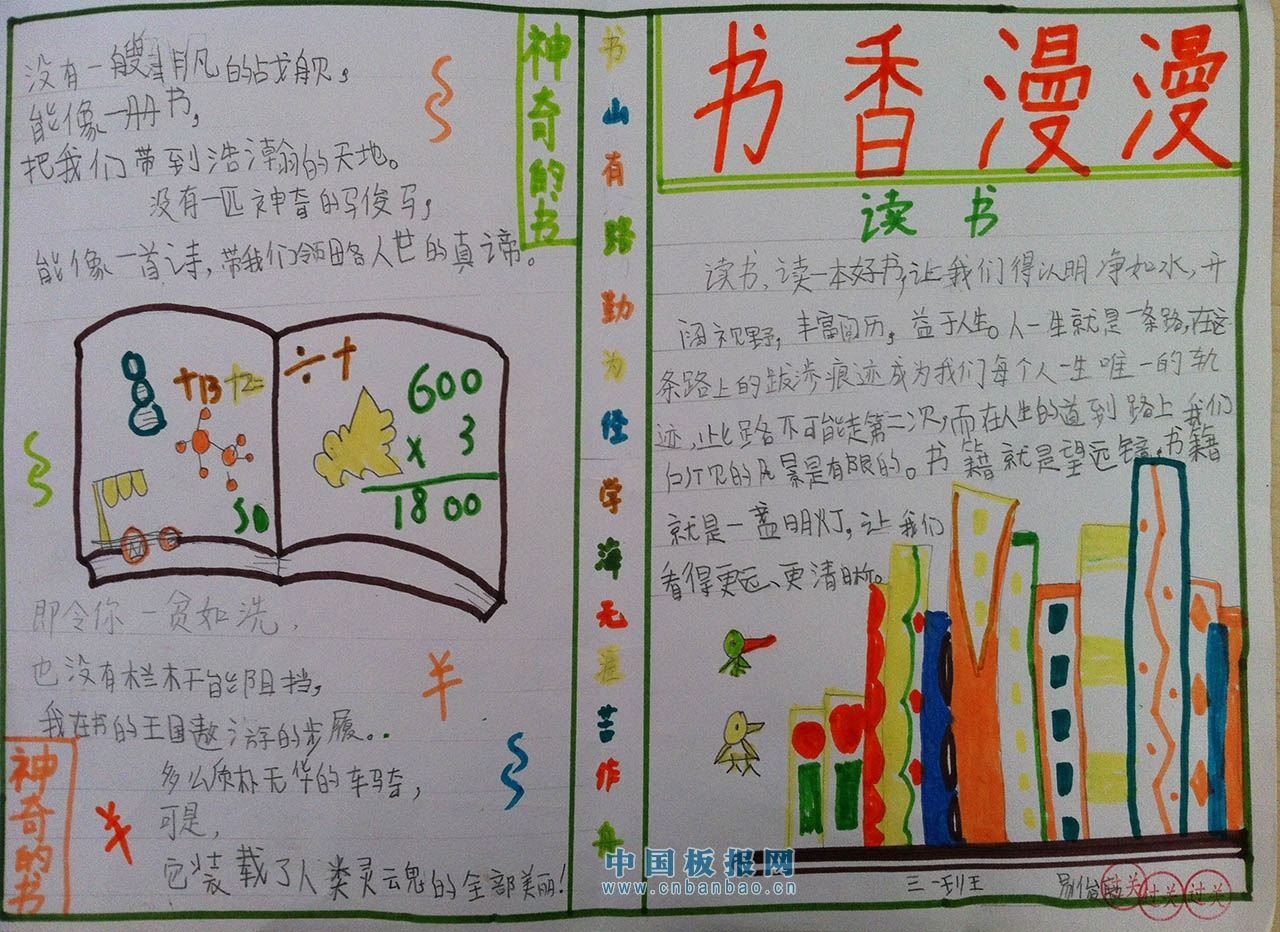 没有一艘非凡的战舰，
能像一册书，
把我们带到浩瀚的天地。
没有一匹神奇的骏马，
能像一首诗，带我们领略人世的真谛。
神奇的书
8
+13+2=
50
÷+
600
× 3
1800
即令你一贫如洗，
也没有栏杆能阻挡，
我在书的王国遨游的步履。
多么质朴无华的车骑，
可是，
它装载了人类灵魂的全部美丽！
神奇的书
书山有路勤为径学海无涯苦作舟
书香漫漫
读书
读书，读一本好书，让我们得以明净如水，开
阔视野，丰富阅历，益于人生。人一生就是一条路，在这
条路上的跋涉痕迹成为我们每个人一生唯一的轨
迹，此路不可能走第二次，而在人生的道到路上，我们
所见的风景是有限的。书籍就是望远镜，书籍
就是一盏明灯，让我们
看得更远、更清晰。
三一班
过关
过关
过关
中国板报网
www.cnbanbao.cn